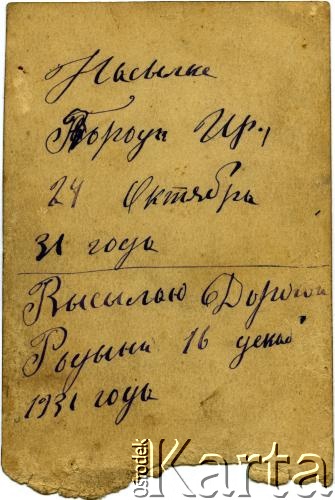 Насылке
Город Ир.,
24 Октября
31 года
Высылаю Дорогой
Родыни 16 декаб
1931 года
ośrodek
Karta